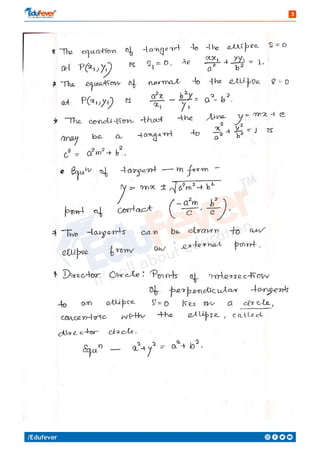 Edufever
3
* The equation of tangent to the ellipse S=0
at P(x₁,y₁) is S₁=0. ie xx₁/a² + yy₁/b² = 1.
* The equation of normal to the ellipse S=0
at P(x₁,y₁) is a²x/x₁ − b²y/y₁ = a²-b².
* The condition that the line y=mx+c
may be a tangent to x²/a² + y²/b² = 1 is
c² = a²m²+b².
* Equⁿ of tangent — m form —
y=mx ± √a²m²+b²
point of contact (-a²m/c, b²/c).
* Two tangents can be drawn to an
ellipse from an external point.
* Director Circle: Points of intersection
of perpendicular tangents
to an ellipse S=0 lies on a circle,
concentric with the ellipse, called
director circle.
Equⁿ — x²+y² = a²+b².
/Edufever